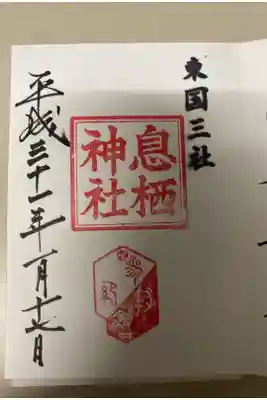 東国三社
息栖
神社
平成三十一年一月十七日